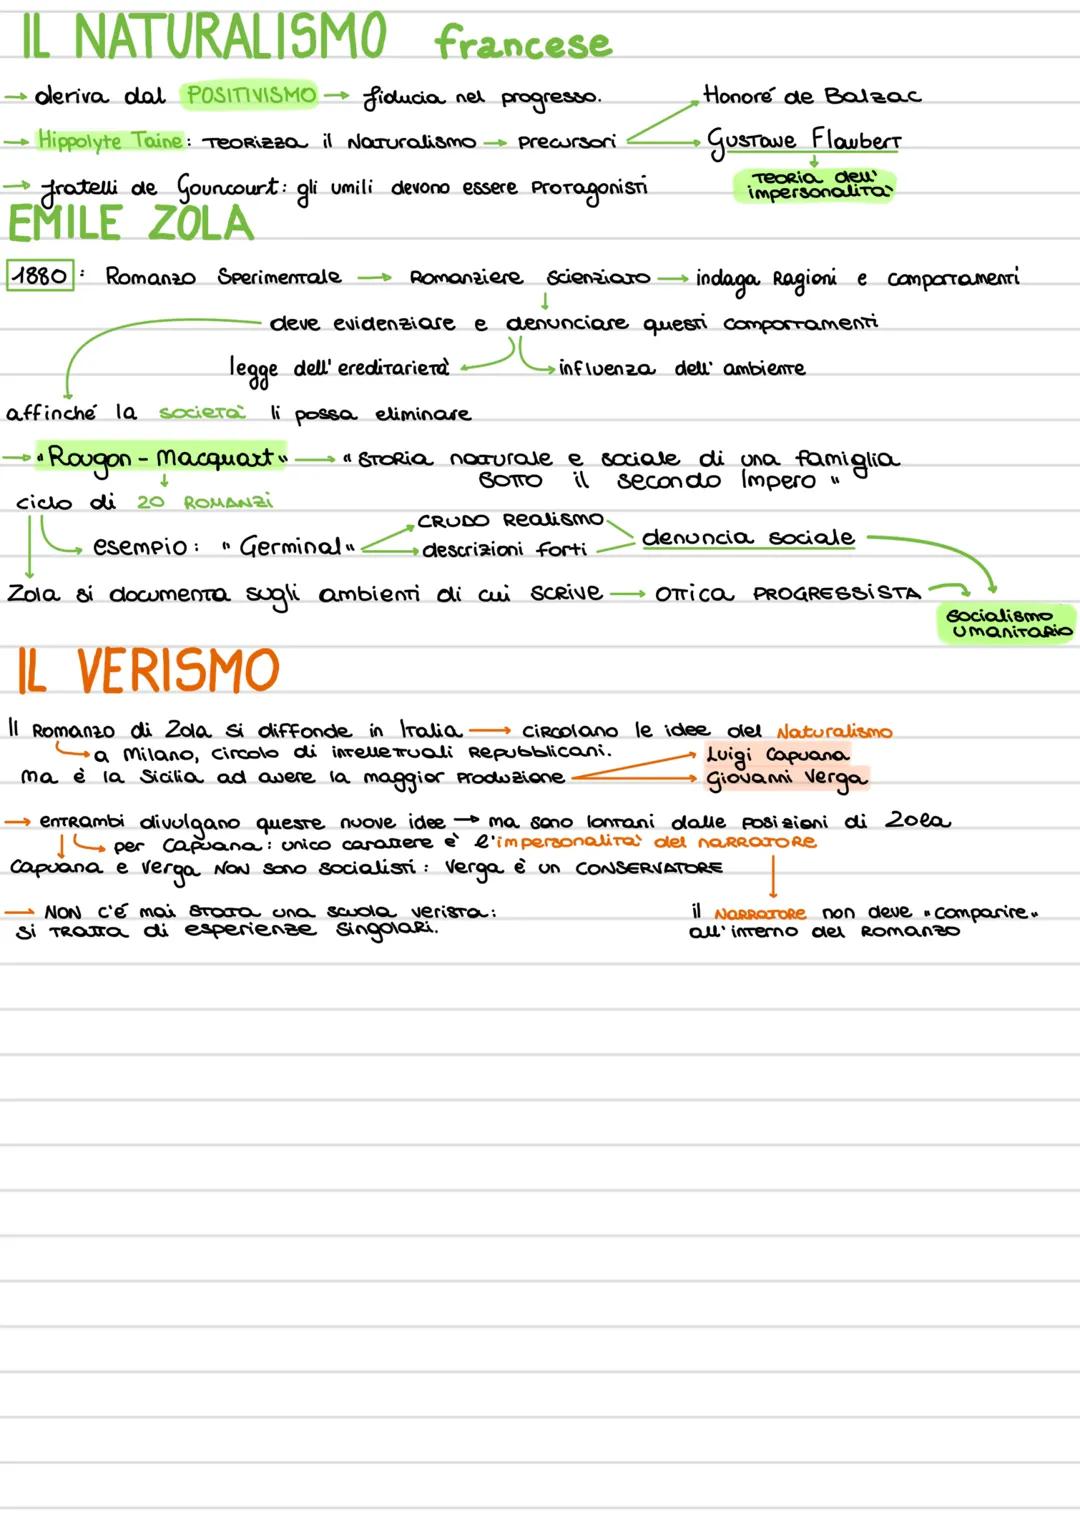 IL NATURALISMO francese
→ deriva dal POSITIVISMO → fiducia nel progresso.
Honoré de Balzac
→ Hippolyte Taine: TEORIZZA il Naturalismo → precursori
GUSTAVE Flaubert
TEORIA dell'
impersonalità
→ fratelli de Gouncourt: gli umili devono essere PROTAGONISTI
EMILE ZOLA
1880: Romanzo Sperimentale → Romanziere scienziato → indaga Ragioni e comportamenti
deve evidenziare e denunciare questi comportamenti
legge dell'ereditarietà
influenza dell'ambiente
affinché la società li possa eliminare
→ "Rougon - Macquart" → "STORIA naturale e sociale di una famiglia
SOTTO il secondo Impero"
ciclo di 20 ROMANZI
CRUDO Realismo
esempio: "Germinal"
descrizioni forti
denuncia sociale
Zola si documenta sugli ambienti di cui SCRIVE → OTTICA PROGRESSISTA
socialismo
UMANITARIO
IL VERISMO
Il Romanzo di Zola si diffonde in Italia → CIRCOLANO le idee del Naturalismo
a Milano, circolo di intellettuali Repubblicani.
Luigi Capuana
ma è la Sicilia ad avere la maggior Produzione
Giovanni Verga
→ ENTRAMBI divulgano queste nuove idee → ma sono lontani dalle posizioni di Zola
per Capuana: unico carattere è l'impersonalità del NARRATORE
Capuana e Verga NON sono socialisti: Verga è un CONSERVATORE
→ NON c'é mai STATA una scuola verista:
si TRATTA di esperienze singolari.
il NARRATORE non deve "comparire"
all'interno del ROMANZO